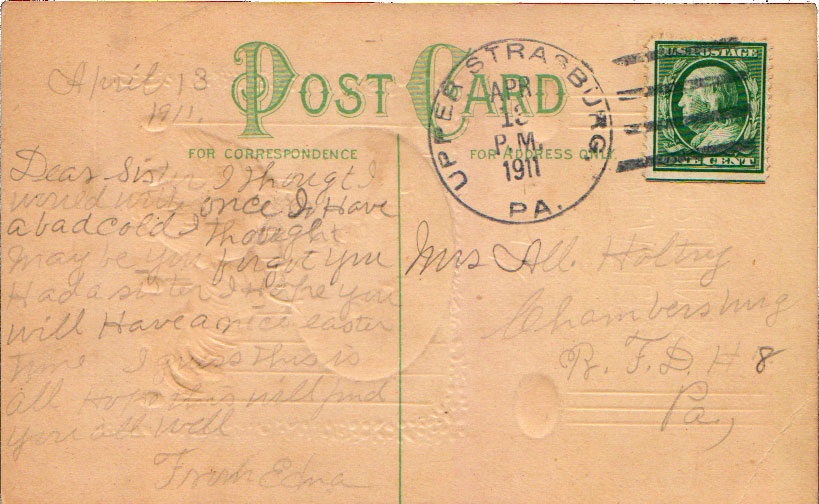 POST CARD
FOR CORRESPONDENCE
FOR ADDRESS ONLY
UPPER STRASBURG,
APR
13
P.M.
1911
PA.
U.S. POSTAGE
ONE CENT
April 13
1911.
Dear Sister I thougt I
would write once I Have
a bad cold I thought
may be you forgot you
Had a sister I Hope you
will Have a nice easter
time I guess this is
all Hope this will find
you all well
From Edna
Mrs All. Holtry
Chambersburg
R. F. D. # 8
Pa,